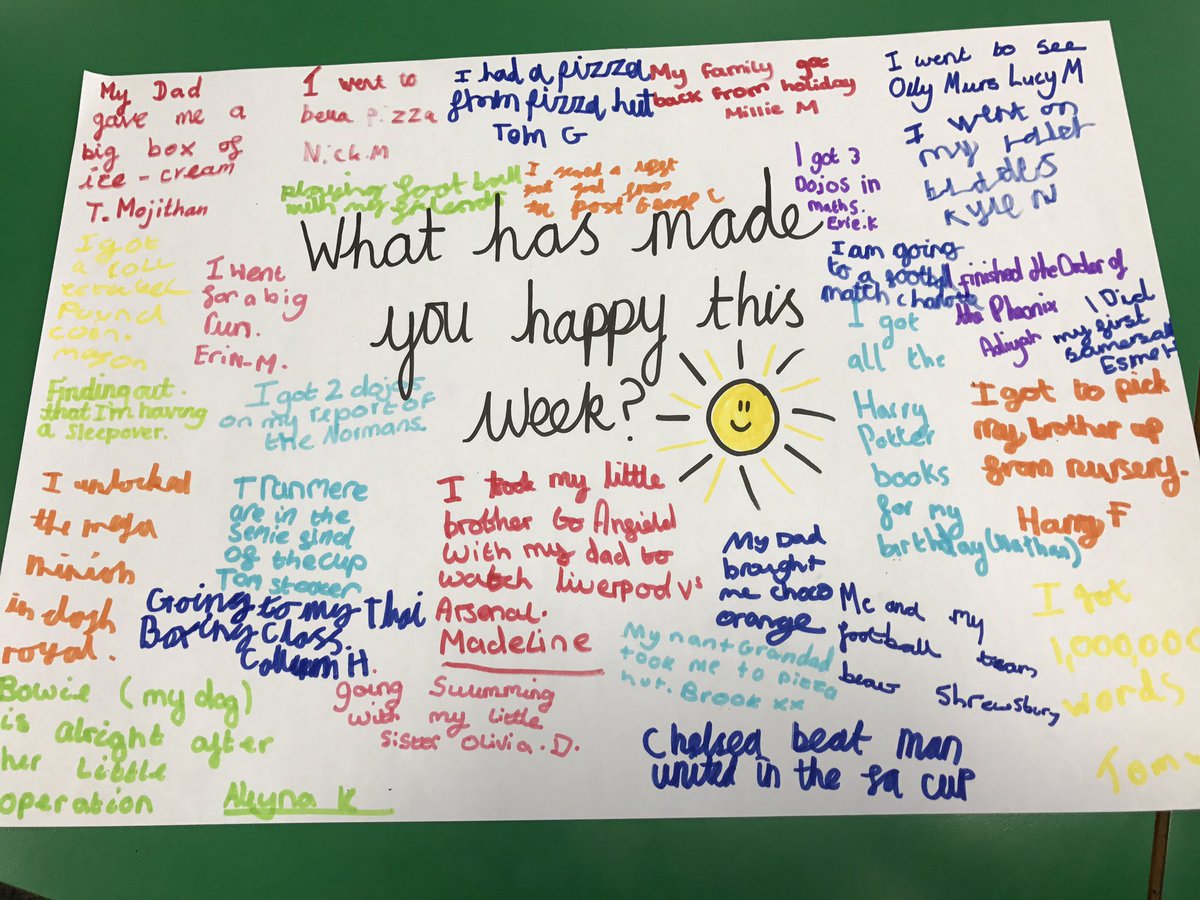 My Dad
gave me a
big box of
ice-cream
T. Mojithan
I went to
bella pizza
Nick.M
I had a pizza
from pizza hut
Tom G
My Family got
back from holiday
Millie M
I went to see
Olly Murs Lucy M
I went on
my roller
blades
Kyle N
playing foot ball
with my friends
in
post George C
I got 3
Dojos in
maths.
Evie.K
What has made
you happy this
week?
I got
a
pound
coin.
mason
I went
for a big
run.
Erin-M.
I am going
to a football
match charlotte
finished the Order of
the Pheonix
Adiyah
I Did
my first
samersalt
Esme H
I got
all the
Harry
Potter
books
for my
birthday (Nathan)
I got to pick
my brother up
from nursery.
Harry F
Finding out.
that I'm having
a sleepover.
I got 2 dojos
on my report of
the Normans.
I unlocked
the mega
minion
in clash
royal.
Tranmere
are in the
Semie
of the cup
Tom
I took my little
brother to Angield
with my dad to
watch liverpool vs
Arsenal.
Madeline
My Dad
brought
me choco
orange
Going to my Thai
Boxing Class.
Callum H.
Me and my
football team
beaw Shrewsbury
I got
1,000,000
words
Tom
Bowie (my dog)
is alright after
her little
operation
Aleyna K
going swimming
with my little
sister Olivia.D.
My nan+Grandad
took me to pizza
hut. Brook xx
Chelsea beat man
united in the fa cup